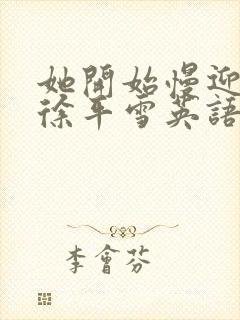 她開始慢迎
徐平雪英語
李會芬